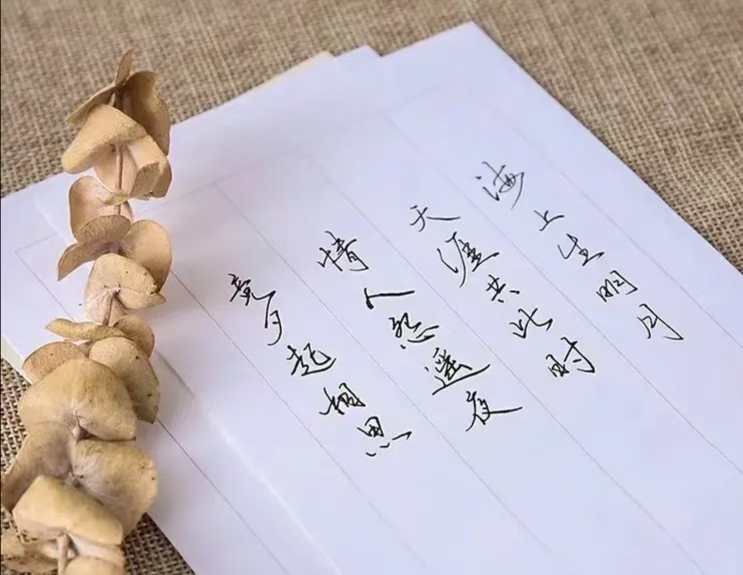 海上生明月
天涯共此时
情人怨遥夜
竟夕起相思